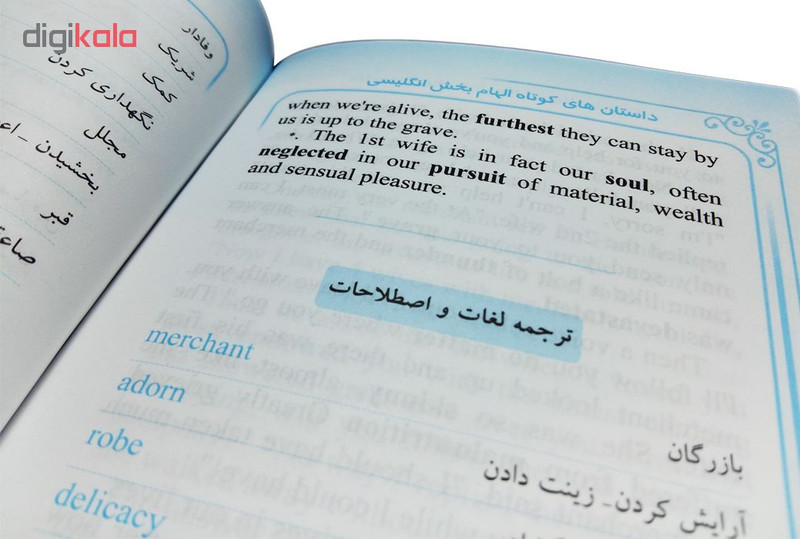 digikala
وفادار
شریک
کمک
نگهداری کردن
مجلل
بخشیدن –
قبر
داستان های کوتاه الهام بخش انگلیسی
when we're alive, the furthest they can stay by
us is up to the grave.
*. The 1st wife is in fact our soul, often
neglected in our pursuit of material, wealth
and sensual pleasure.
ترجمه لغات و اصطلاحات
merchant بازرگان
adorn آرایش کردن- زینت دادن
robe
delicacy